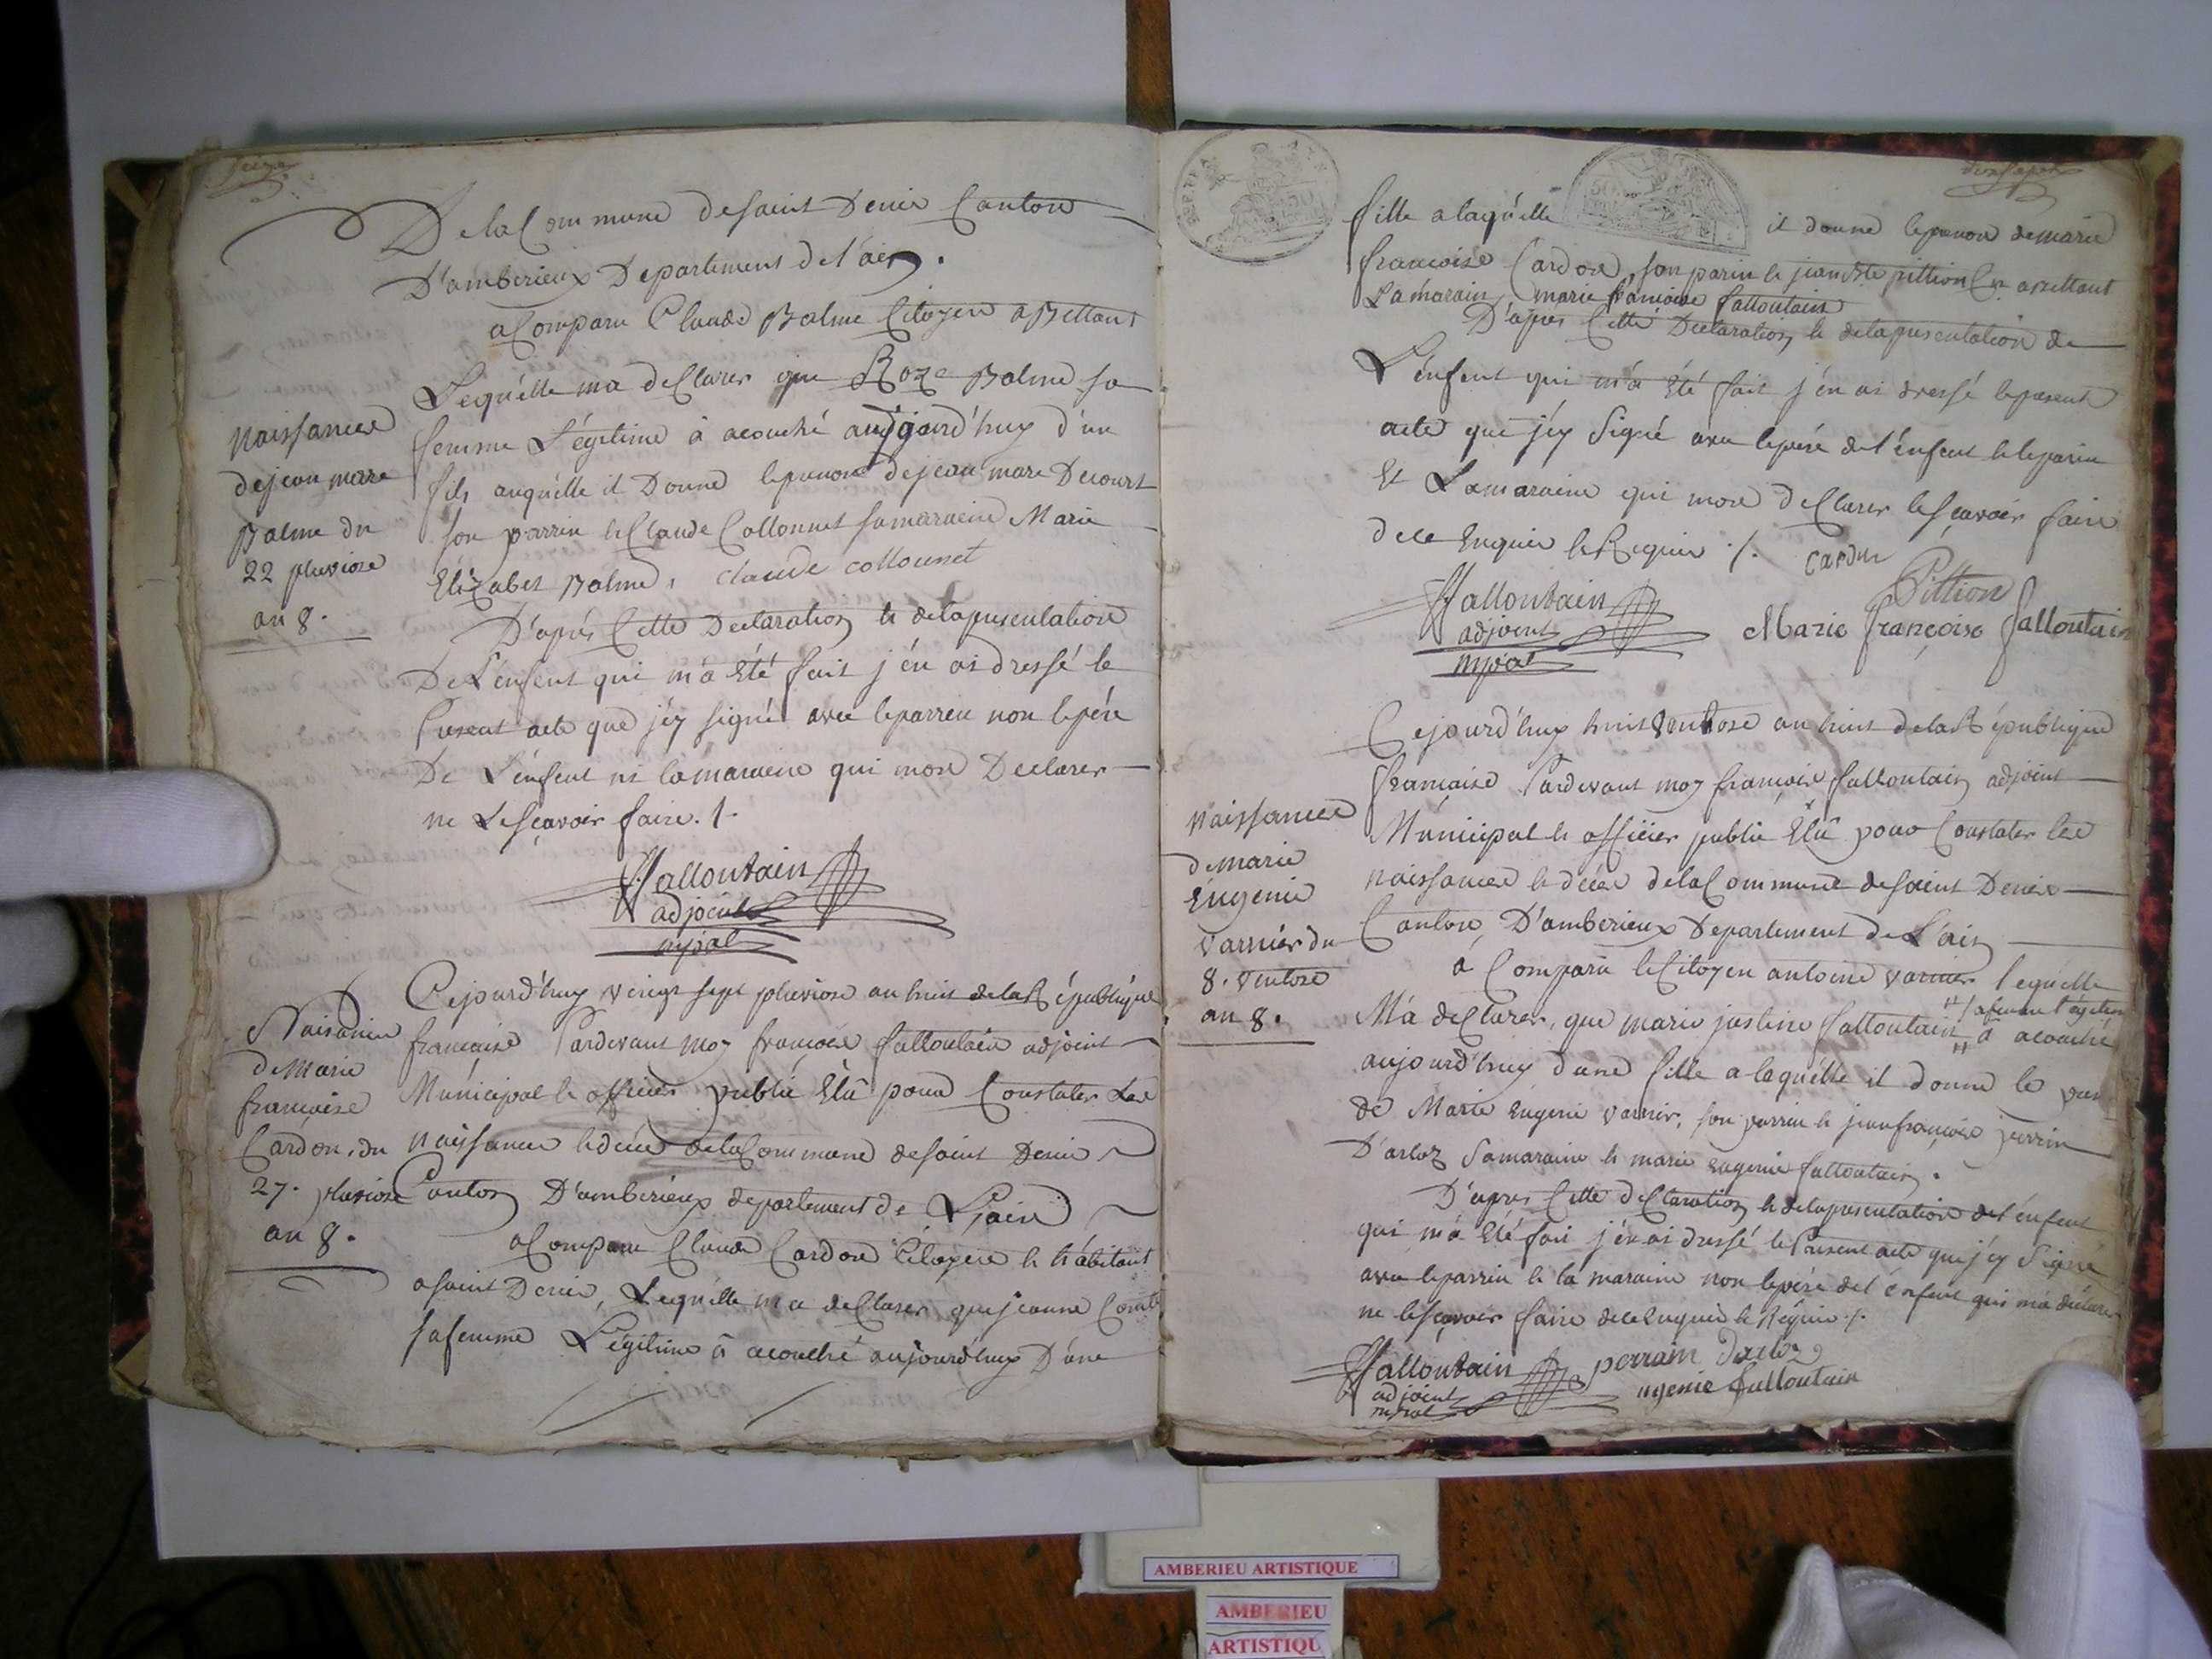 De la Commune de saint Denis Canton
D'amberieux Departement de l'ain.
a Comparu Claude Balme Citoyen a Bettant
Lequélle ma déClarer que Roze Balme sa
femme Légitime à acouché aujourd'huy d'un
fils auquélle il Donne le prenom de jean marc Decourt
son parrin le Claude Collonnet sa maraine Marie
Elizabet Balme, claude collounet
D'aprés Cette Declaration & de la presentation
De L'enfent qui m'a Eté fait j'én ai dressé le
Present acte que j'éy signé avec le parrein non le pére
De L'énfent ni la maraine qui mon Declarer
ne Le sçavoir faire ./.
ffalloutain
adjoint
mpal
Naissance
de jean marc
Balme du
22 pluviose
an 8.
Cejourd'huy veingt sept pluviose an huit de la République
francaise Pardevant moy françois falloutain adjoint
Municipal & officier public Elû pour Constater Les
naissance & décés de la Commune de saint Denis
Canton D'ambérieux departement de L'ain
a Comparu Claude Cardon Citoyen & hábitant
a saint Denis, Lequélle ma déClarer que jeanne Comte
sa femme Légitime à acouché aujourd'huy D'une
Naisance
de Marie
francoise
Cardon, du
27. pluviose
an 8.
fille a laquélle il donne le prenom de marie
francoise Cardon, son parin le jean Bte pittion Cn a Bettant
La marain, marie francoise falloutain
D'aprés Cette Declaration & de la presentation de
L'énfent qui m'a Eté fait j'én ai dressé le present
acte que j'éy Signé avec le pére de l'énfent & le parin
Et La maraine qui mon déClarer le sçavoir faire
de ce Enquis & Requis ./. cardon
Pittion
ffalloutain
adjoint
mpal
Marie françoise falloutain
Cejourd'huy huit ventose an huit de la République
francaise Pardevant moy françois falloutain adjoint
Municipal & officier public Elû pour Constater les
naissances & décés de la Commune de saint Denis
Canton D'amberieux Departement de L'ain
a Comparu le Citoyen antoine varnier lequélle
M'a déClarer, que marie justine falloutain # à acouché
# sa femme légitime
aujourd'huy d'une fille a laquélle il donne le
de Marie Eugenie varnier, son parrin le jean françois perrin
D'arloz Sa maraine & marie Eugenie falloutain.
D'aprés Cette déClaration & de la presentation de l'énfent
qui m'á Eté fait j'én ai dressé le Present acte que j'éy Signé
avec le parrin & la maraine non le pére de l'énfent qui m'a déclarer
ne le sçavoir faire de ce Enquis & Réquis ./.
ffalloutain
adjoint
mpal
perrain Darloz
ugenie falloutain
Naissance
de marie
Eugenie
varnier du
8. ventose
an 8.
AMBERIEU ARTISTIQUE
AMBERIEU
ARTISTIQU